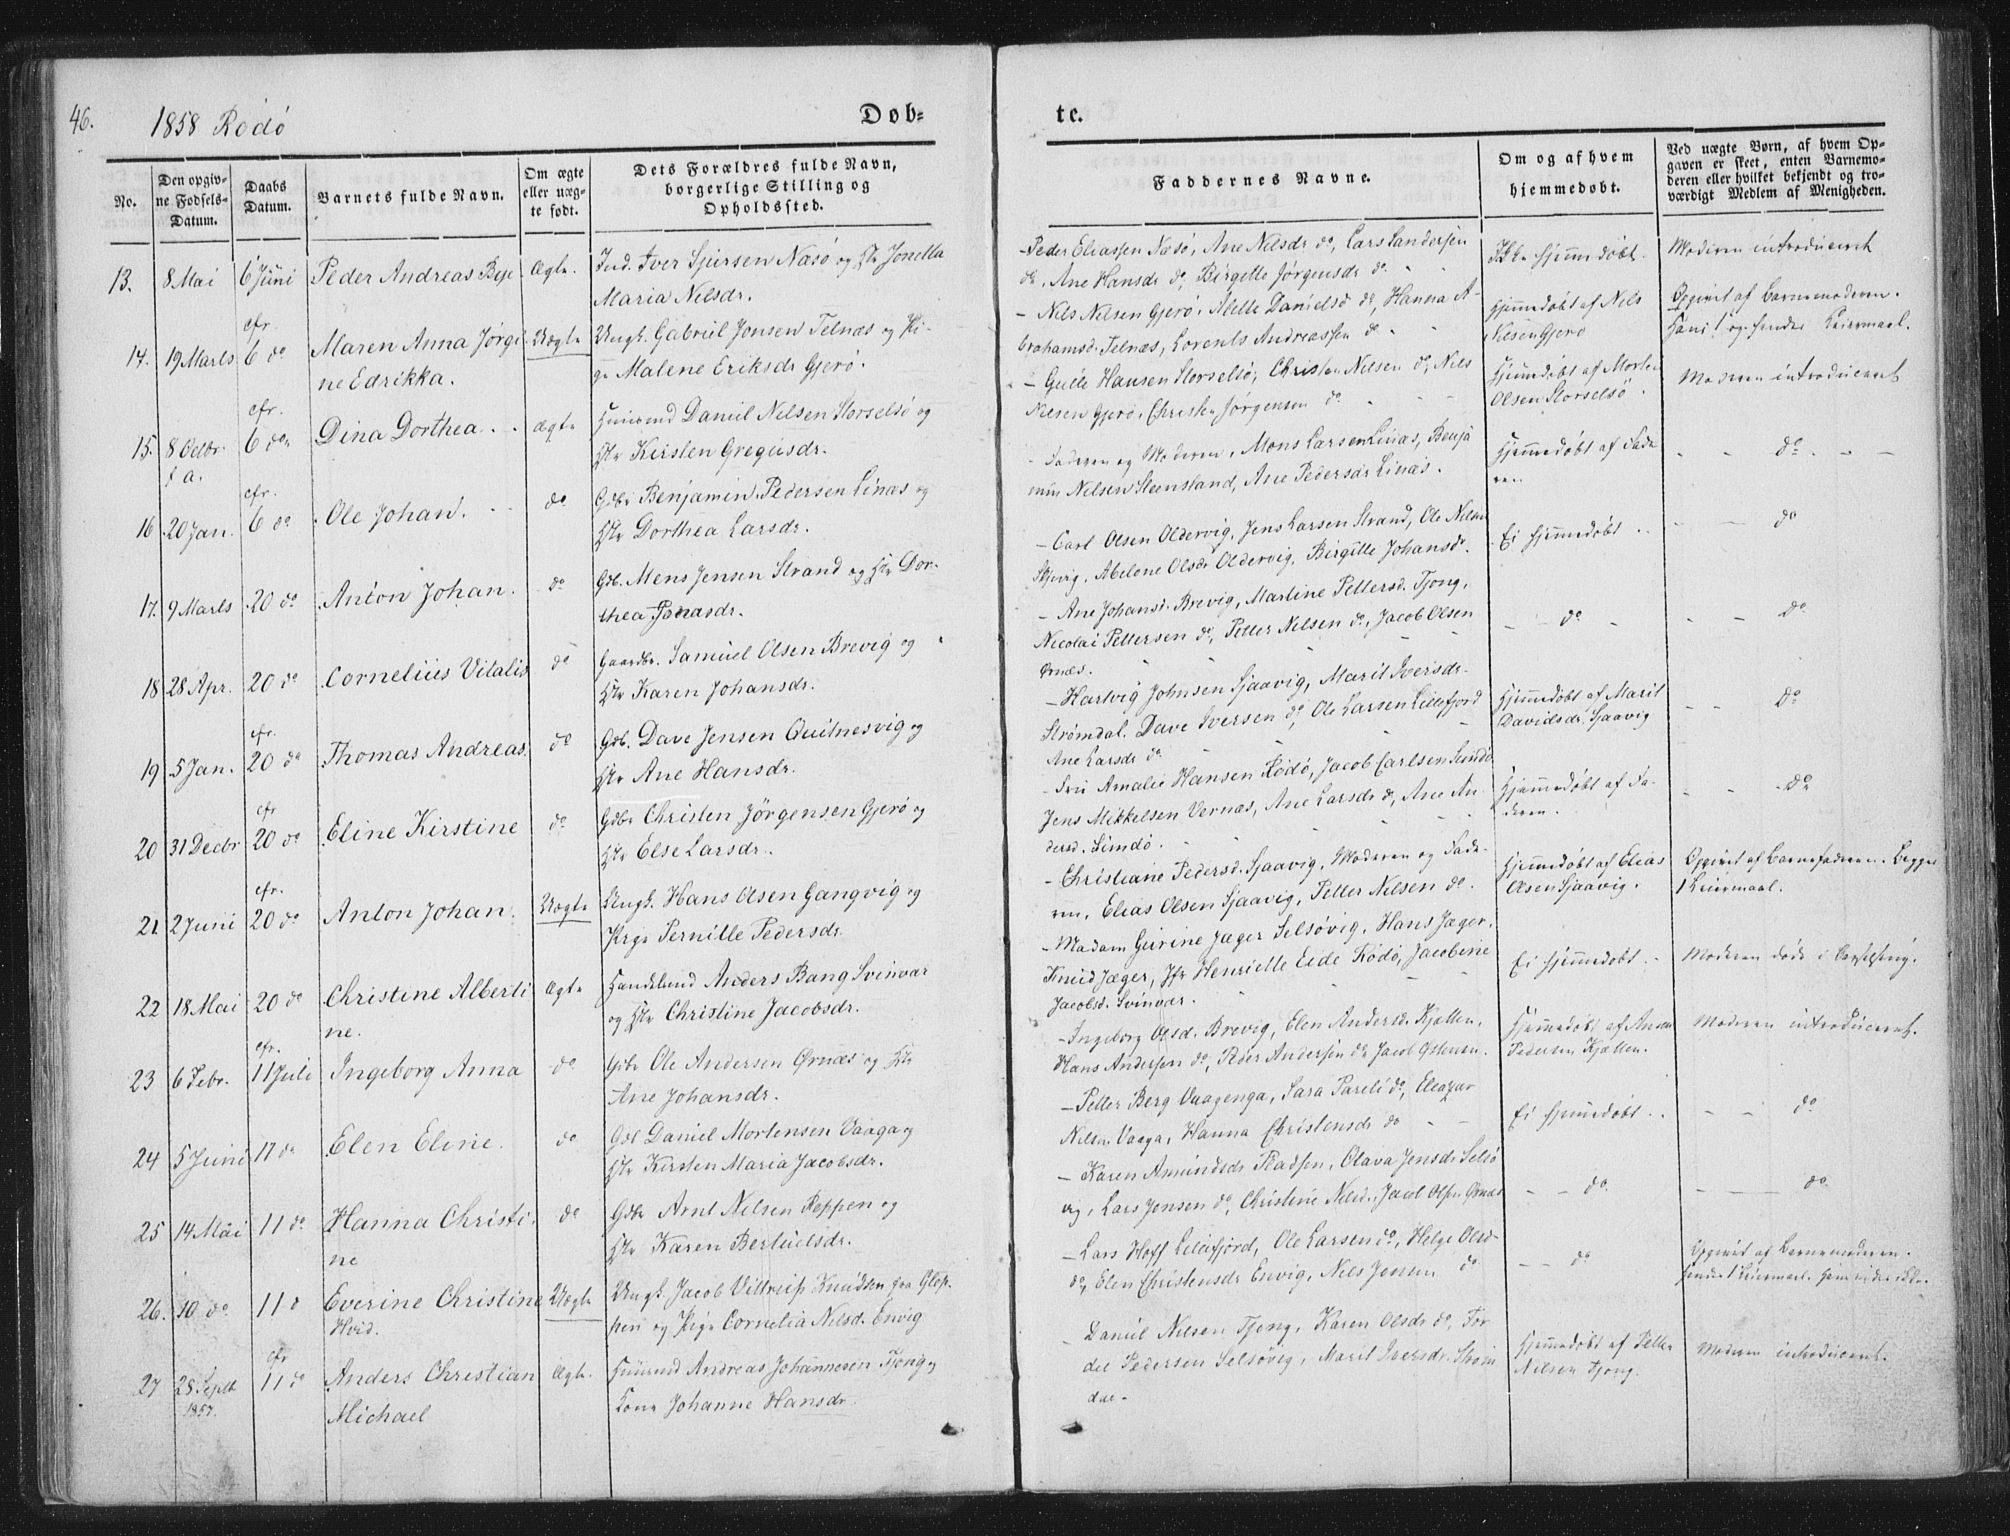 46.
1858 Rödö
Døb-
te.
No.
Den opgiv-
ne Fødsels-
Datum.
Daabs
Datum.
Barnets fulde Navn.
Om ægte
eller uæg-
te født.
Dets Forældres fulde Navn,
borgerlige Stilling og
Opholdssted.
Faddernes Navne.
Om og af hvem
hjemmedøbt.
Ved uægte Børn, af hvem Op-
gaven er skeet, enten Barnemo-
deren eller hvilket bekjendt og tro-
værdigt Medlem af Menigheden.
13. 8 Mai 6 Juni Peder Andreas Ægte. Ind. Iver Sjursen Næsö og Jonetta
Maria Nilsdr.
Peder Eliassen Næsö, Ane Nilsdr do, Lars Sandersen
do, Ane Hansdr do, Birgitte Jørgensdr do.
Ikke hjemmedøbt.
Moderen introduceret
14. 19 Marts cfr. 6 do Maren Anna Jørgi Uægte Ungk. Gabriel Jonsen Telnæs og Pi-
ne Edrikka. ge Malene Eriksdr Gjerö.
Nils Nilsen Gjerö, Mette Danielsd do, Hanna A-
brahamsd. Telnæs, Lorents Andreassen do
hjemmedøbt af Nils
Nilsen Gjerö
Opgivet af Barnemoderen.
15. 8 Octbr. cfr. 6 do Dina Dorthea. ægte Daniel Nilsen Storselsö og
f. a. Kirsten Gregusdr.
Gulle Hansen Storselsö, Christen Nilsen do, Nils
Nilsen Gjerö, Christen Jørgensen do
Hjemmedøbt af Morten
Olsen Storselsö.
Moderen introduceret
16 20 Jan. cfr. 6 do Ole Johan. do Gdbr Benjamin Pedersen Linæs og
Dorthea Larsdr.
Faderen og Moderen, Mons Larsen Linæs, Benja
min Nilsen Steensland, Ane Pedersdr Linæs.
Hjemmedøbt af Fade
ren
do
17. 9 Marts 20 do Anton Johan. do Gdb. Mens Jensen Strand og Hr Dor-
thea Jonasdr.
Carl Olsen Oldervig, Jens Larsen Strand, Ole Nilsen
Abelone Olsdr Oldervig, Birgitte Johansdr.
Ei hjemmedøbt
do
18 28 Apr. 20 do Cornelius Vitalis do Gaardbr. Samuel Olsen Brevig og
Karen Johansdr.
Ane Johansd. Brevig, Martine Pettersd. Tjong,
Nicolai Pettersen do, Petter Nilsen do, Jacob Olsen
Ørnæs.
do
do
19 5 Jan. cfr. 20 do Thomas Andreas do Gdb. Dave Jensen Quitnesvig og
Ane Hansdr.
Hartvig Johnsen Sjaavig, Marit Iversdr.
Strømdal. Dave Iversen do, Ole Larsen Lillefjord
Ane Larsdr do
Hjemmedøbt af Marit
Davidsdr. Sjaavig
do
20 31 Decbr cfr 20 do Eline Kirstine do Gdbr Christen Jørgensen Gjerö og
Else Larsdr.
Amalie Hansen Rödö, Jacob Carlsen Sundö
Jens Mikkelsen Vernæs, Ane Larsdr do, Ane An
dersd.
Hjemmedøbt af Fa-
deren.
do
21. 2 Juni cfr. 20 do Anton Johan. Uægte Ungk. Hans Olsen Gangvig og
Pige Pernille Pedersdr
Christiane Pedersd. Sjaavig, Moderen og Fade-
ren, Elias Olsen Sjaavig, Petter Nilsen do.
Hjemmedøbt af Elias
Olsen Sjaavig.
Opgivet af Barnefaderen. Begges
1 Leiermaal.
22 18 Mai 20 do Christine Alberti Ægte Handelsmd Anders Bang Svinvær
ne. og Christine Jacobsdr.
Madam Gurine Jæger Selsövig, Hans Jæger,
Knud Jæger, Jfr Henriette Eide Rödö, Jacobine
Jacobsd. Svinvær.
Ei hjemmedøbt
Moderen døde i Barselseng.
23 6 Febr. cfr. 11 Juli Ingeborg Anna do Gdbr Ole Andersen Ørnæs og
Ane Johansdr.
Ingeborg Olsd. Brevig, Elen Andersd. Kjelten,
Hans Andersen do, Peder Andersen do Jacob
Hjemmedøbt af
Pedersen Kjælten.
Moderen introduceret.
24 5 Juni 11 do Elen Eline. do Gdb Daniel Mortensen Vaaga og
Kirsten Maria Jacobsdr.
Petter Berg Vaagenga, Sara Pareli do, Eleazar
Nilsen Vaaga, Hanna Christensdr do
Ei hjemmedøbt
do
25 14 Mai 11 do Hanna Christi. do Gdbr Arnt Nilsen Reppen og
ne Karen Bertuelsdr.
Karen Amundsdr Pladsen, Olava Jensdr Selsö
vig, Lars Jensen do, Christine Nilsd., Jacob Olsen Ørnæs
do
do
26. 10 do. 11 d Everine Christine Uægte Ungk. Jacob Viltrup Knudsen fra Glop-
Hvid. pen og Pige Cornelia Nilsd. Envig
Lars Hoff Lillefjord, Ole Larsen do, Helge Olsd-
do, Elen Christensdr Envig, Nils Jensen do
do
Opgivet af Barnemoderen.
27 28 Septr cfr 11 do Anders Christian Ægte. Andreas Johannesen Tjong og
1857. Michael Kone Johanne Hansdr
Daniel Nilsen Tjong, Karen Olsdr do, Tor
del Pedersen Selsövig, Marit Iversdr. Strøm
dal.
Hjemmedøbt af Petter
Nilsen Tjong.
Moderen introduceret.